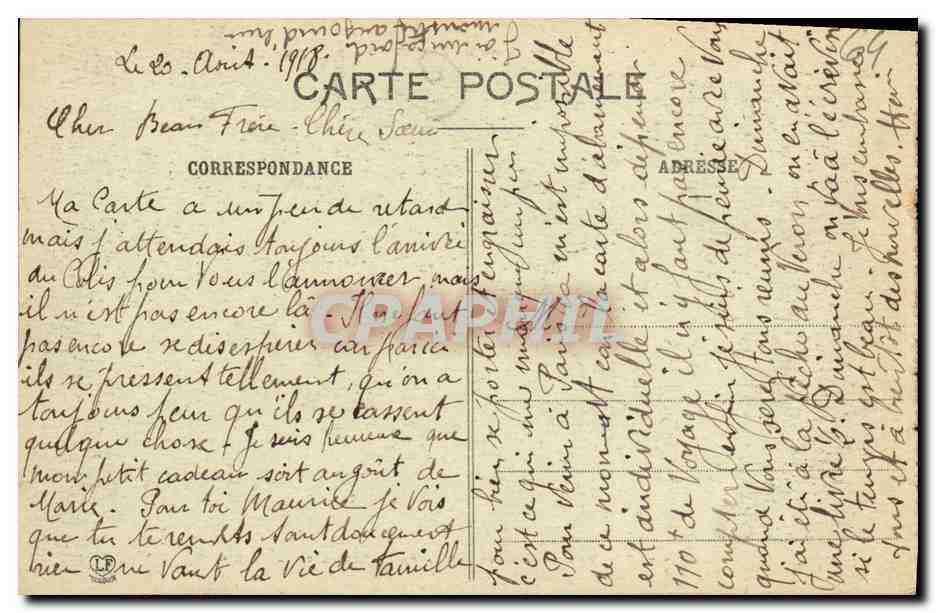 Le 20. Août. 1918.
CARTE POSTALE
Cher Beau Frère - Chère Sœur
CORRESPONDANCE
ADRESSE
Ma Carte a un peu de retard
mais j'attendais toujours l'arrivée
du Colis pour vous l'annoncer, mais
il n'est pas encore là - Il ne faut
pas encore se désespérer car par ici
ils se pressent tellement, qu'on a
toujours peur qu'ils se cassent
quelque chose - Je suis heureuse que
mon petit cadeau soit au goût de
Marie. Pour toi Maurice je vois
que tu te rends sans doute
rien ne vaut la vie de famille
LF
pour bien se porter et engraisser
c'est ce qui me manque un peu
Pour venir à Paris ça m'est impossible
de ce moment car la carte d'abonnement
est individuelle et alors dépenser
110 f de voyage il n'y faut pas encore
compter. Enfin je suis de pensée avec vous
quand vous serez tous réunis. Dimanche
j'ai été à la pêche au Véron on en avait
une livre ½. Dimanche on va à l'écrevisse
si le temps est beau. Je vous embrasse
tous et à bientôt des nouvelles. Henri
J'ai un
aujourd'hui
64
CPAPHIL